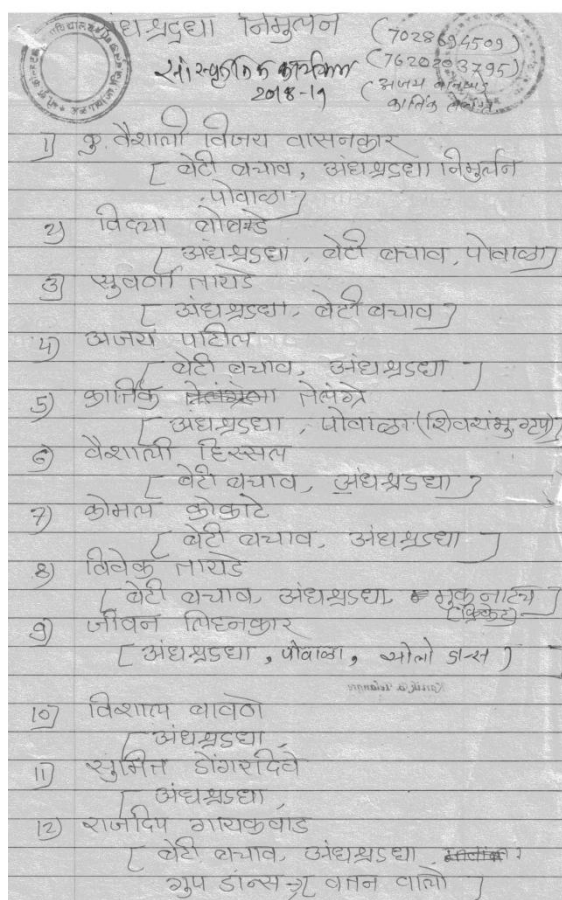 अंधश्रद्धा निर्मुलन (7028694509)
सांस्कृतिक कार्यक्रम (7620203795)
2018-19 (अजय
कार्तिक
1) कु. वैशाली विजय वासनकार
[ बेटी बचाव, अंधश्रध्दा निर्मुलन
पोवाळा ]
2) विद्या बोबडे
[ अंधश्रध्दा, बेटी बचाव, पोवाळा ]
3) सुवर्णा तायडे
[ अंधश्रध्दा, बेटी बचाव ]
4) अजय पाटील
[ बेटी बचाव, अंधश्रध्दा ]
5) कार्तिक तेलंग्रे
[ अंधश्रध्दा, पोवाळा (शिवशंभु ग्रुप)]
6) वैशाली हिस्सल
[ बेटी बचाव, अंधश्रध्दा ]
7) कोमल कोकाटे
[ बेटी बचाव, अंधश्रध्दा ]
8) विवेक तायडे
[ बेटी बचाव, अंधश्रध्दा, मुकनाट्य ]
(क्रिकेट)
9) जीवन तिहनकार
[ अंधश्रध्दा, पोवाळा, सोलो डान्स ]
10) विशाल बावणे
[ अंधश्रध्दा,
11) सुमित डोंगरदिवे
[ अंधश्रध्दा,
12) राजदिप गायकवाड
[ बेटी बचाव, अंधश्रध्दा,
ग्रुप डांन्स → वतन वालो ]